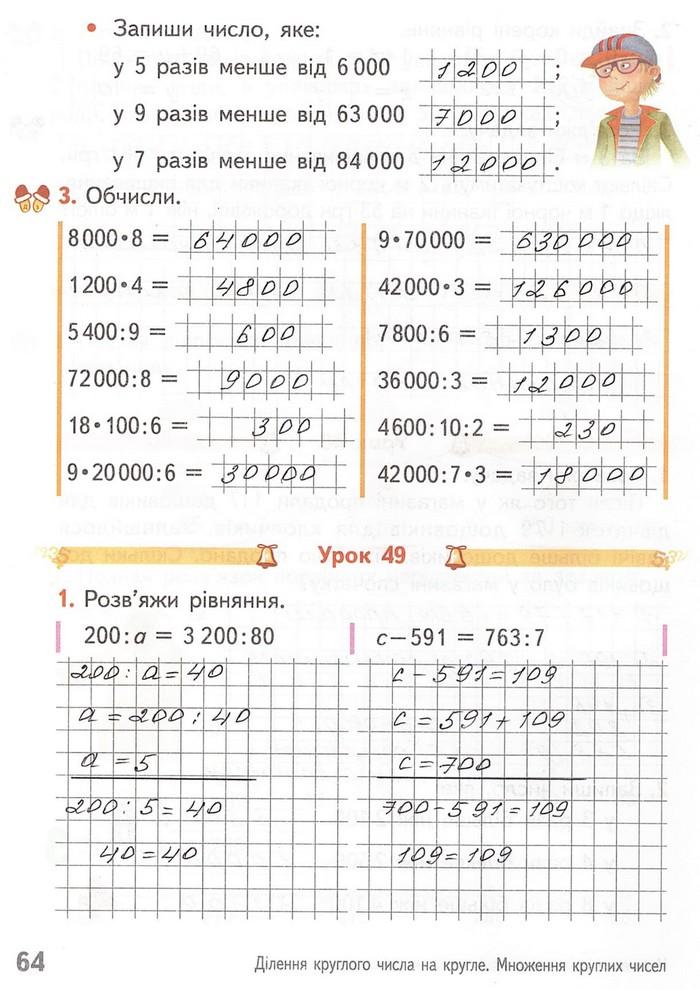 • Запиши число, яке:
у 5 разів менше від 6 000 1200 ;
у 9 разів менше від 63 000 7000 ;
у 7 разів менше від 84 000 12000 .
3. Обчисли.
8 000•8 = 64000
9•70 000 = 630000
1 200•4 = 4800
42 000•3 = 126000
5 400:9 = 600
7 800:6 = 1300
72 000:8 = 9000
36 000:3 = 12000
18•100:6 = 300
4 600:10:2 = 230
9•20 000:6 = 30000
42 000:7•3 = 18000
Урок 49
1. Розв'яжи рівняння.
200:a = 3 200:80
c–591 = 763:7
200 : a = 40
c - 591 = 109
a = 200 : 40
c = 591 + 109
a = 5
c = 700
200 : 5 = 40
700 - 591 = 109
40 = 40
109 = 109
64
Ділення круглого числа на кругле. Множення круглих чисел